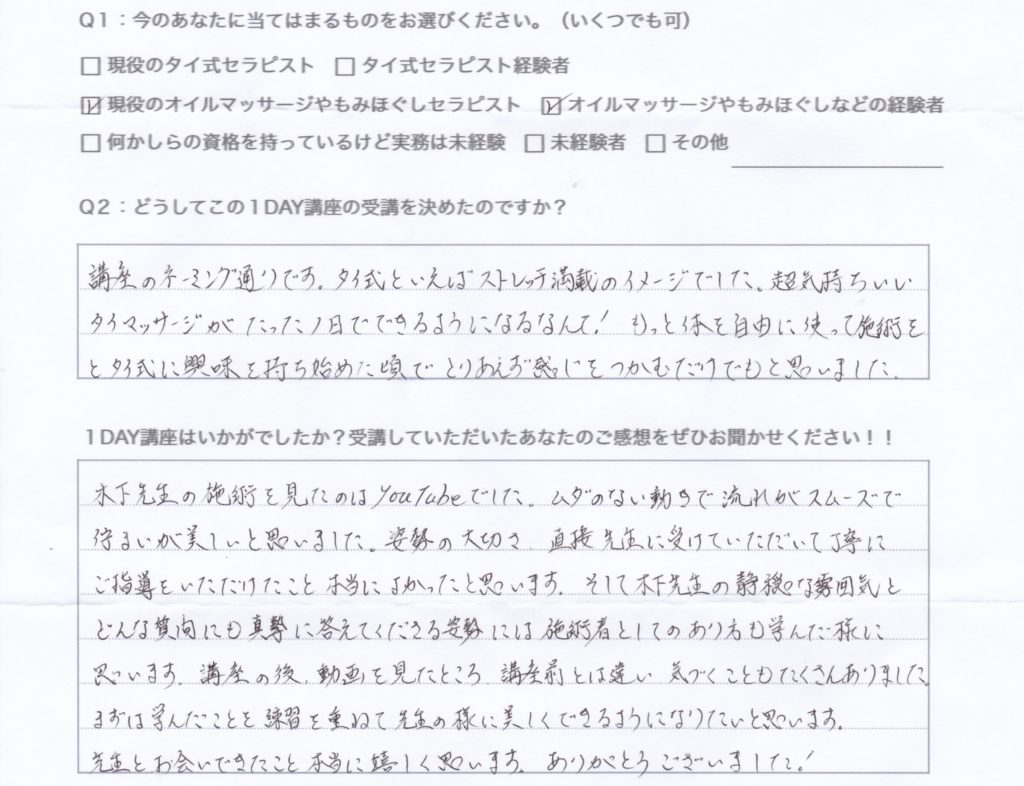 Q1：今のあなたに当てはまるものをお選びください。（いくつでも可）
□ 現役のタイ式セラピスト □ タイ式セラピスト経験者
☑ 現役のオイルマッサージやもみほぐしセラピスト ☑ オイルマッサージやもみほぐしなどの経験者
□ 何かしらの資格を持っているけど実務は未経験 □ 未経験者 □ その他
Q2：どうしてこの１DAY講座の受講を決めたのですか？
講座のネーミング通りです。タイ式といえばストレッチ満載のイメージでした。超気持ちいい
タイマッサージがたった1日でできるようになるなんて！もっと体を自由に使って施術を
とタイ式に興味を持ち始めた頃でとりあえず感じをつかむだけでもと思いました。
１DAY講座はいかがでしたか？受講していただいたあなたのご感想をぜひお聞かせください！！
木下先生の施術を見たのはYouTubeでした。ムダのない動きで流れがスムーズで
佇まいが美しいと思いました。姿勢の大切さ、直接先生に受けていただいて丁寧に
ご指導をいただけたこと本当によかったと思います。そして木下先生の静穏な雰囲気と
どんな質問にも真摯に答えてくださる姿勢には施術者としてのあり方も学んだ様に
思います。講座の後、動画を見たところ講座前とは違い気づくこともたくさんありました。
まずは学んだことを練習を重ねて先生の様に美しくできるようになりたいと思います。
先生とお会いできたこと本当に嬉しく思います。ありがとうございました！